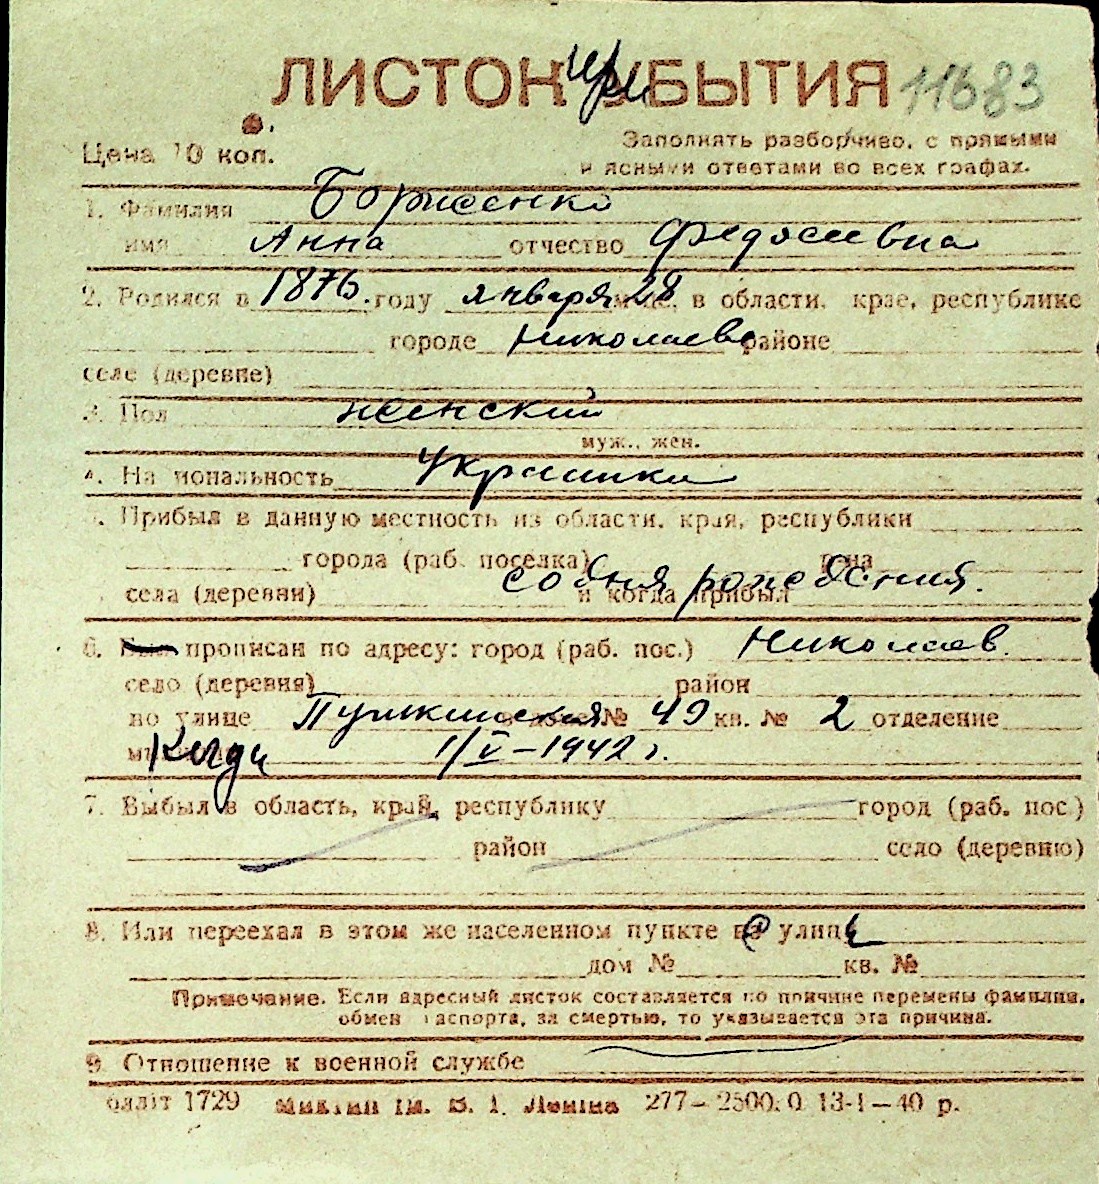 ЛИСТОК при УБЫТИЯ 11683
Цена 10 коп. Заполнять разборчиво, с прямыми
и ясными ответами во всех графах.
1. Фамилия Борисенко
имя Анна отчество Федосеевна
2. Родился в 1876. году января м-це, 28 в области, крае, республике
городе Николаеве районе
селе (деревне)
3. Пол женский
муж., жен.
4. Национальность Украинка
5. Прибыл в данную местность из области, края, республики
города (раб. поселка) р-на
села (деревни) и когда прибыл со дня рождения.
6. Был прописан по адресу: город (раб. пос.) Николаев.
село (деревня) район
по улице Пушкинская № 49 кв. № 2 отделение
Когда 1/V–1942 г.
7. Выбыл в область, край, республику город (раб. пос.)
район село (деревню)
8. Или переехал в этом же населенном пункте на улицу
дом № кв. №
Примечание. Если адресный листок составляется по причине перемены фамилии,
обмен паспорта, за смертью, то указывается эта причина.
9. Отношение к военной службе
1729 ім. В. І. Леніна 277– 13-I–40 р.